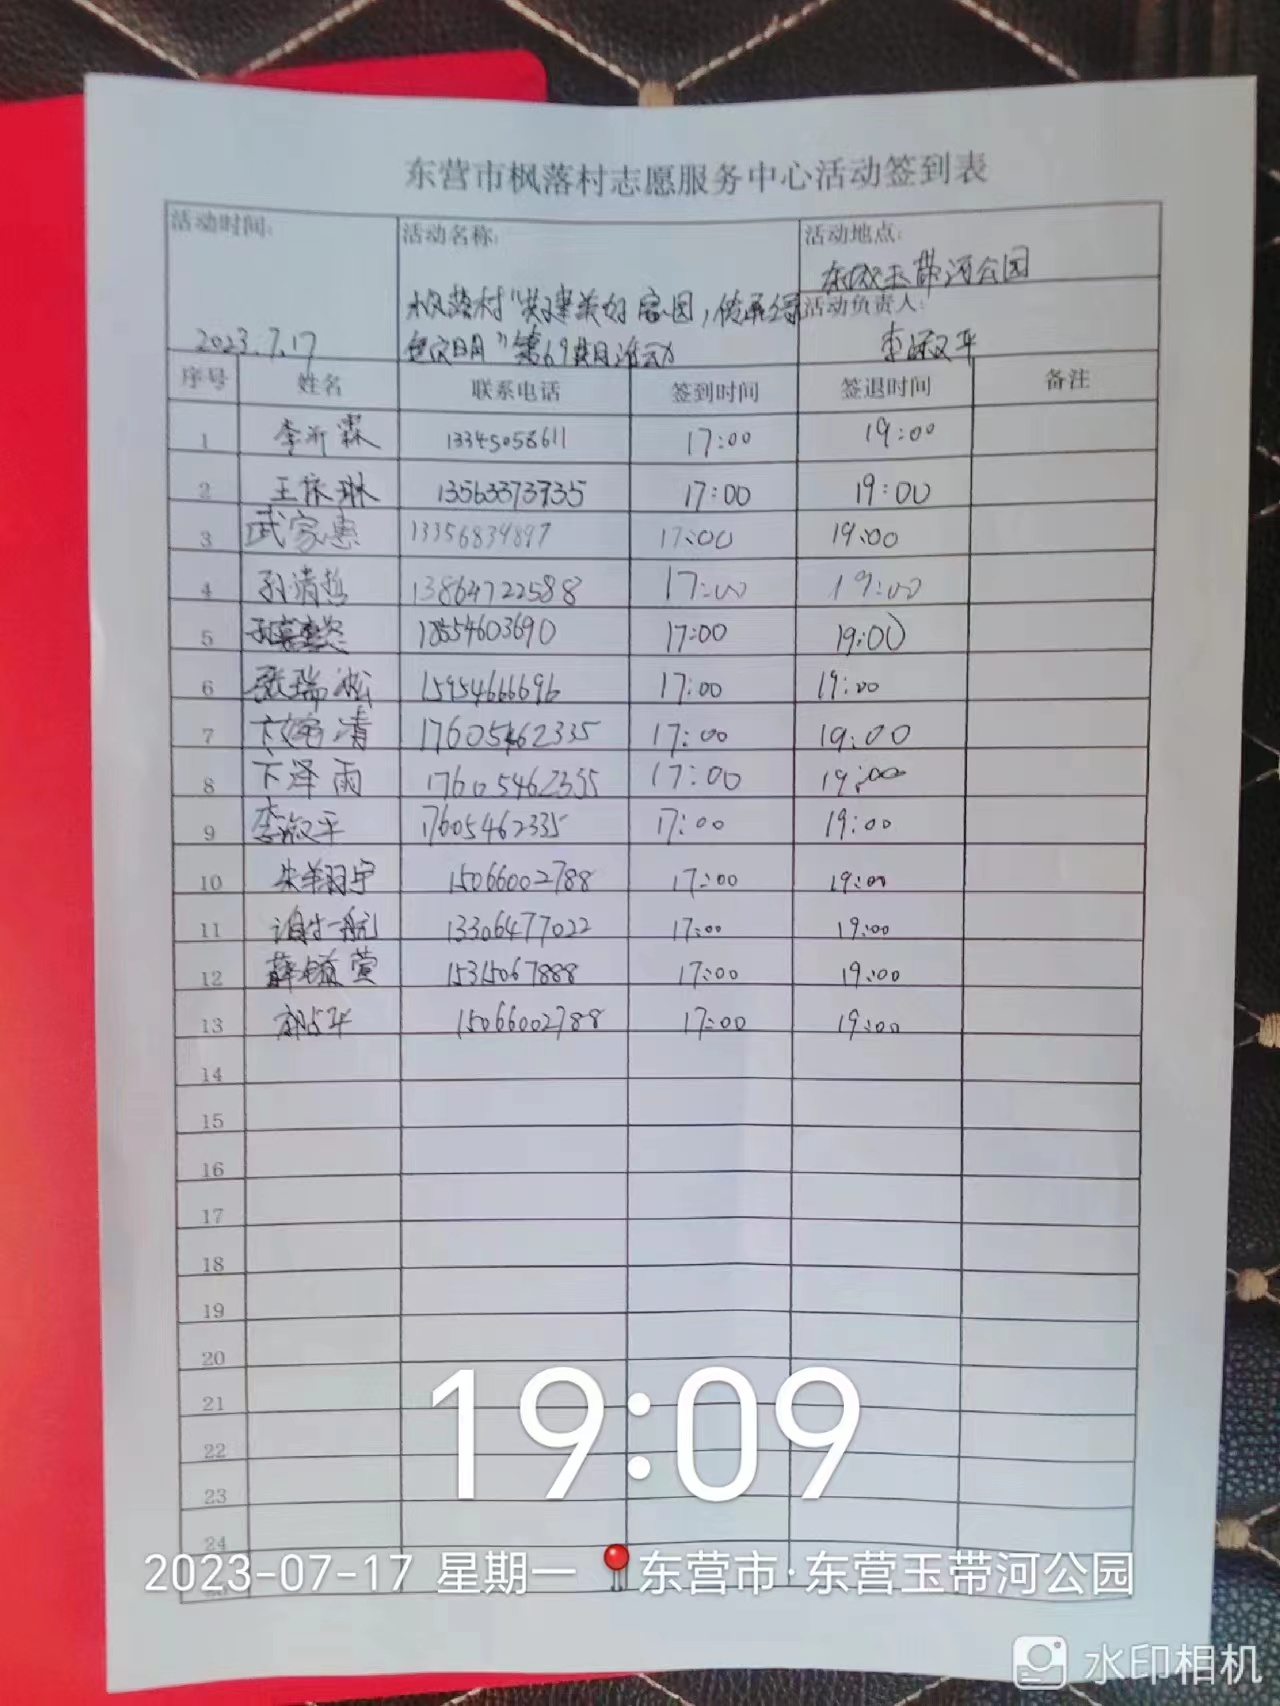 东营市枫落村志愿服务中心活动签到表
活动时间: 活动名称: 活动地点:
东城玉带河公园
枫落村"共建美好家园,传承绿 活动负责人:
2023.7.17 色文明"第69期活动 李淑平
序号 姓名 联系电话 签到时间 签退时间 备注
1 李沂霖 13345058611 17:00 19:00
2 王依琳 13563373735 17:00 19:00
3 武家惠 13356839897 17:00 19:00
4 孙清哲 13864722588 17:00 19:00
5 18554603690 17:00 19:00
6 张瑞淞 15954666696 17:00 19:00
7 清 17605462335 17:00 19:00
8 卞泽雨 17605462335 17:00 19:00
9 李淑平 17605462335 17:00 19:00
10 羽宇 15066002788 17:00 19:00
11 一航 13306477022 17:00 19:00
12 薛 萱 15315067888 17:00 19:00
13 15066002788 17:00 19:00
14
15
16
17
18
19
20
21
22
23
24
19:09
2023-07-17 星期一 东营市·东营玉带河公园
水印相机